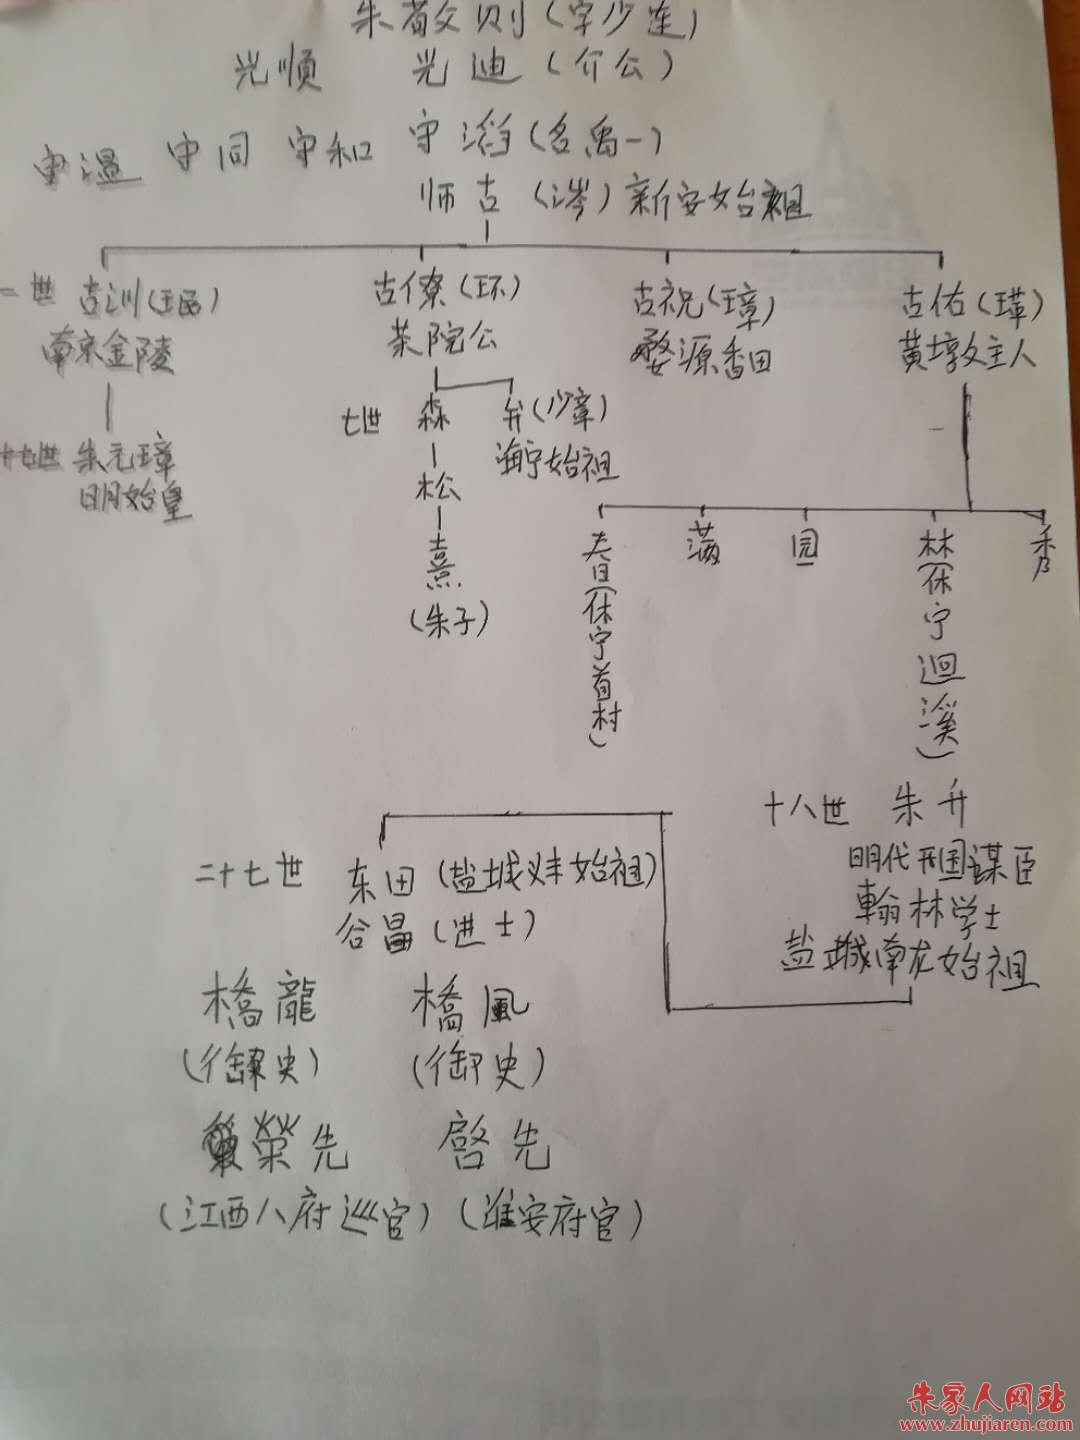 朱敬则(字少连)
光顺 光迪(介公)
守温 守同 守和 守滔(名禹一)
师古(涔)新安始祖
二世 古训 古僚(环) 古祝(璋) 古佑(瑾)
南京金陵 茶院公 婺源香田 黄墩主人
七世 森 弁(少章)
海宁始祖
十七世 朱元璋 松
明始皇
熹
(朱子)
春(休宁首村) 满 园 林(休宁迴溪) 秀
十八世 朱升
明代开国谋臣
翰林学士
盐城南龙始祖
二十七世 东田(盐城义丰始祖)
谷昌(进士)
橋龍 橋風
(御史) (御史)
榮先 啓先
(江西八府巡官)(淮安府官)
朱家人网站
www.zhujiaren.com